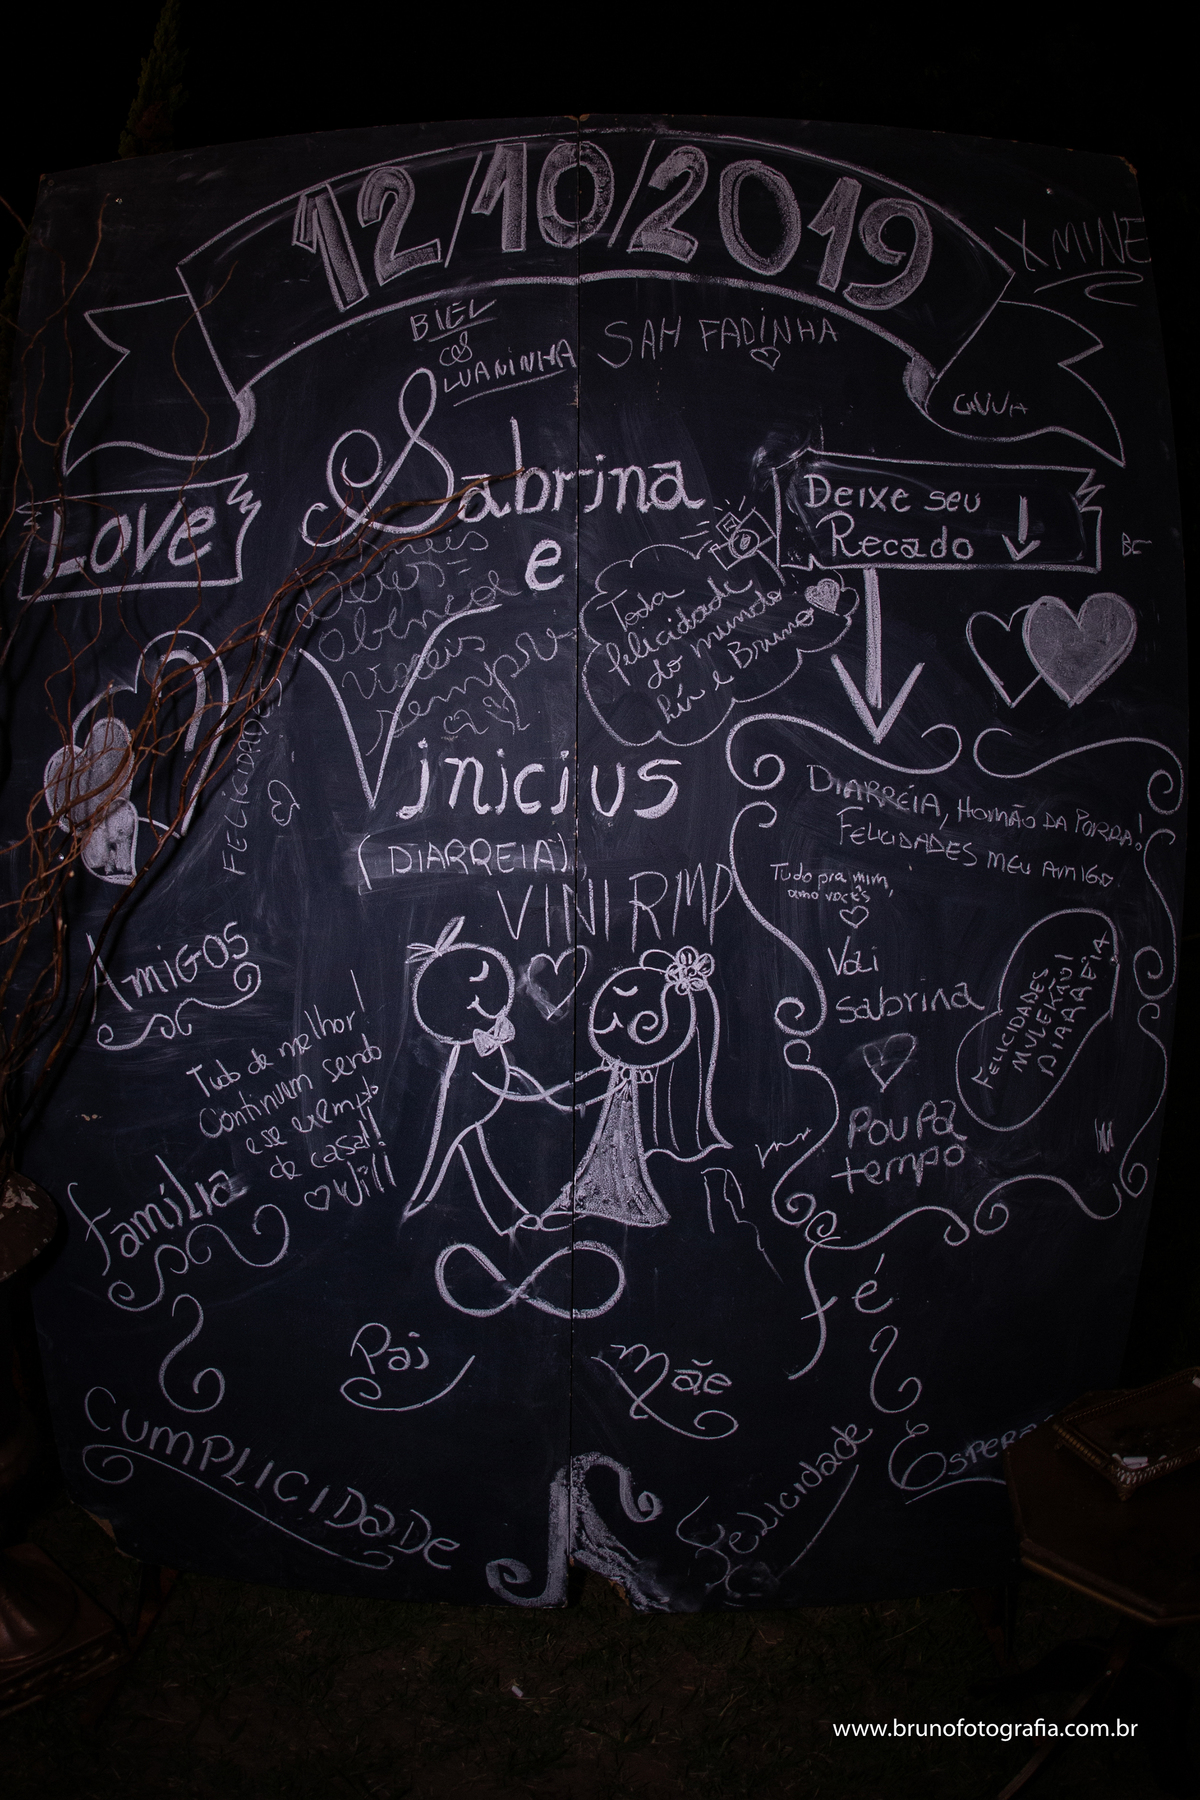 12/10/2019
X MINE
BIEL
LUANINHA
SAH FADINHA
Sabrina
e
Vinicius
(DIARREIA)
VINI RMP
LOVE
Deixe seu
Recado
Toda
felicidade
do mundo
e Bruno
FELICIDADES
DIARRÉIA, HOMÃO DA PORRA!
FELICIDADES MEU AMIGO
Tudo pra mim,
amo vocês
Vai
sabrina
FELICIDADES
MULEKÃO!
DIARRÉIA
Poupa
tempo
AMIGOS
Tudo de melhor!
Continuem sendo
esse exemplo
de casal!
Will
Família
Pai
Mãe
Fé
CUMPLICIDADE
Felicidade
www.brunofotografia.com.br